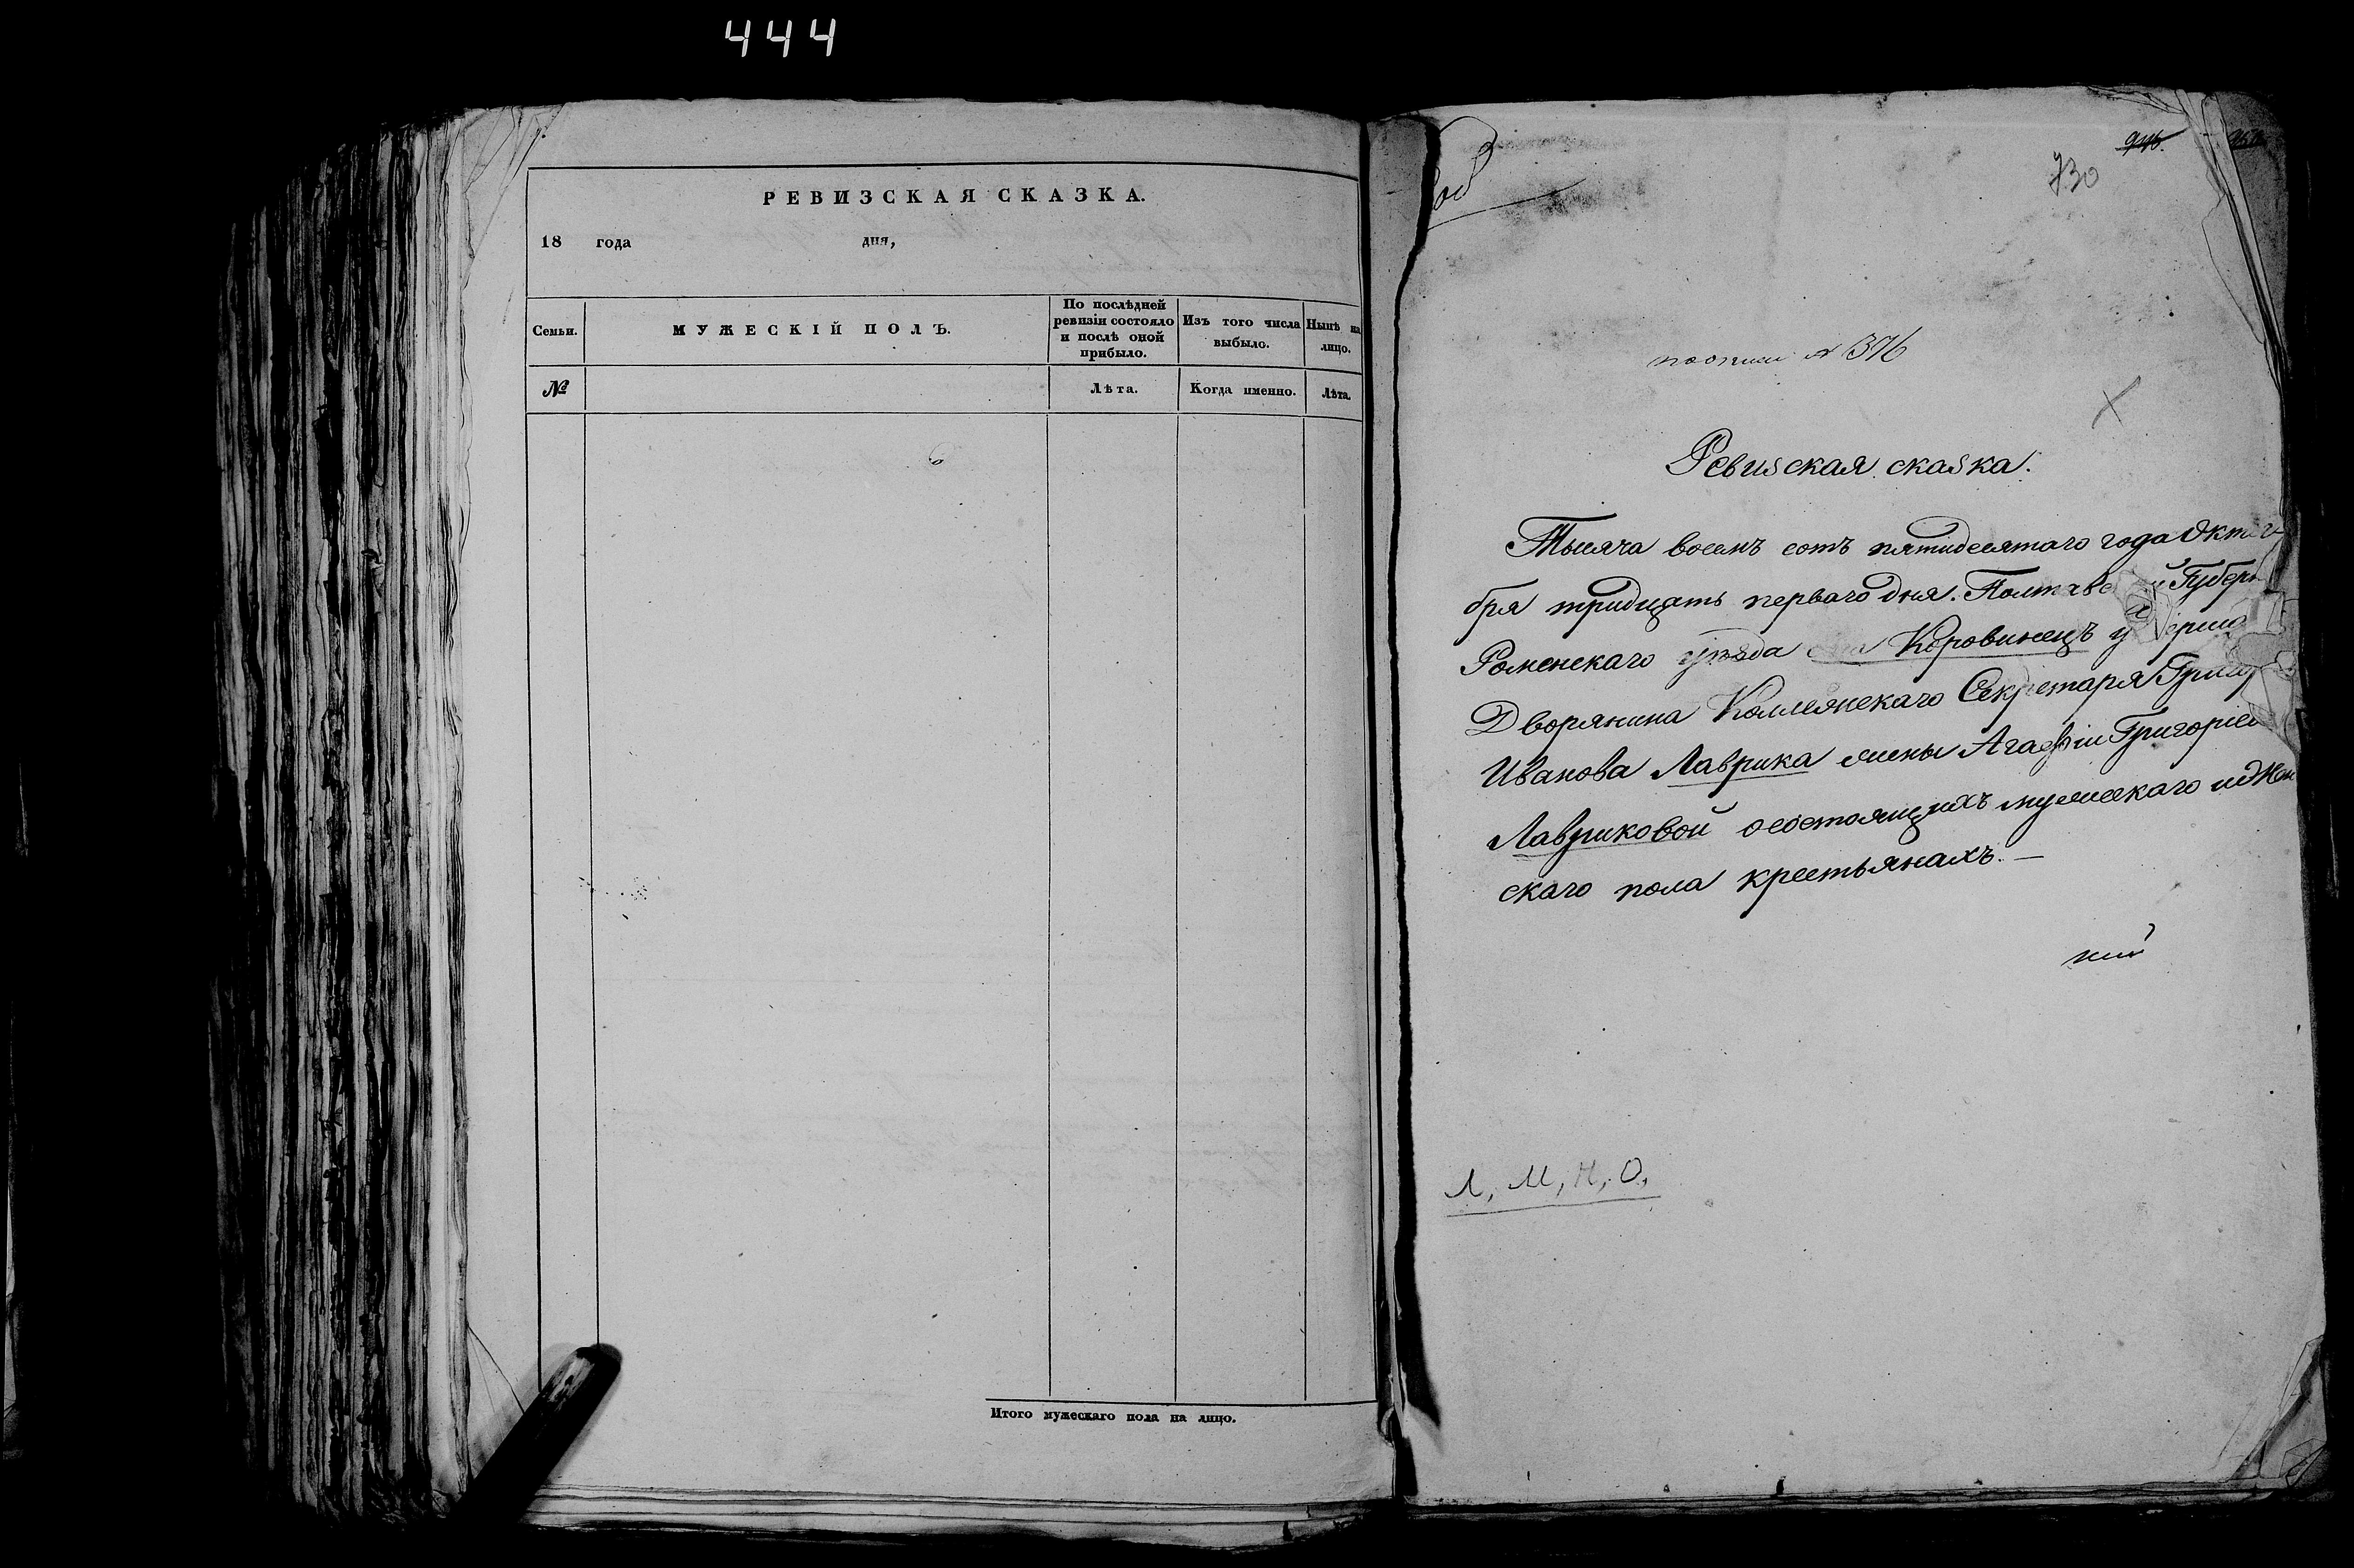 444
РЕВИЗСКАЯ СКАЗКА.
18 года дня,
Семьи.
МУЖЕСКІЙ ПОЛЪ.
По послѣдней
ревизіи состояло
и послѣ оной
прибыло.
Изъ того числа
выбыло.
Нынѣ на
лицо.
№
Лѣта.
Когда именно.
Лѣта.
Итого мужескаго пола на лицо.
730
по описи № 376
Ревизская сказка.
Тысяча восемь сотъ пятидесятаго года Октя
бря тридцать перваго дня. Полтавс й Губерн
Роменскаго уѣзда Коровинецъ
Дворянина Коллежскаго Секретаря Григ
Иванова Лаврика жены Агафіи Григоріев
Лавриковой о состоящихъ мужескаго и Жен
скаго пола крестьянахъ. —
Л, М, Н, О,